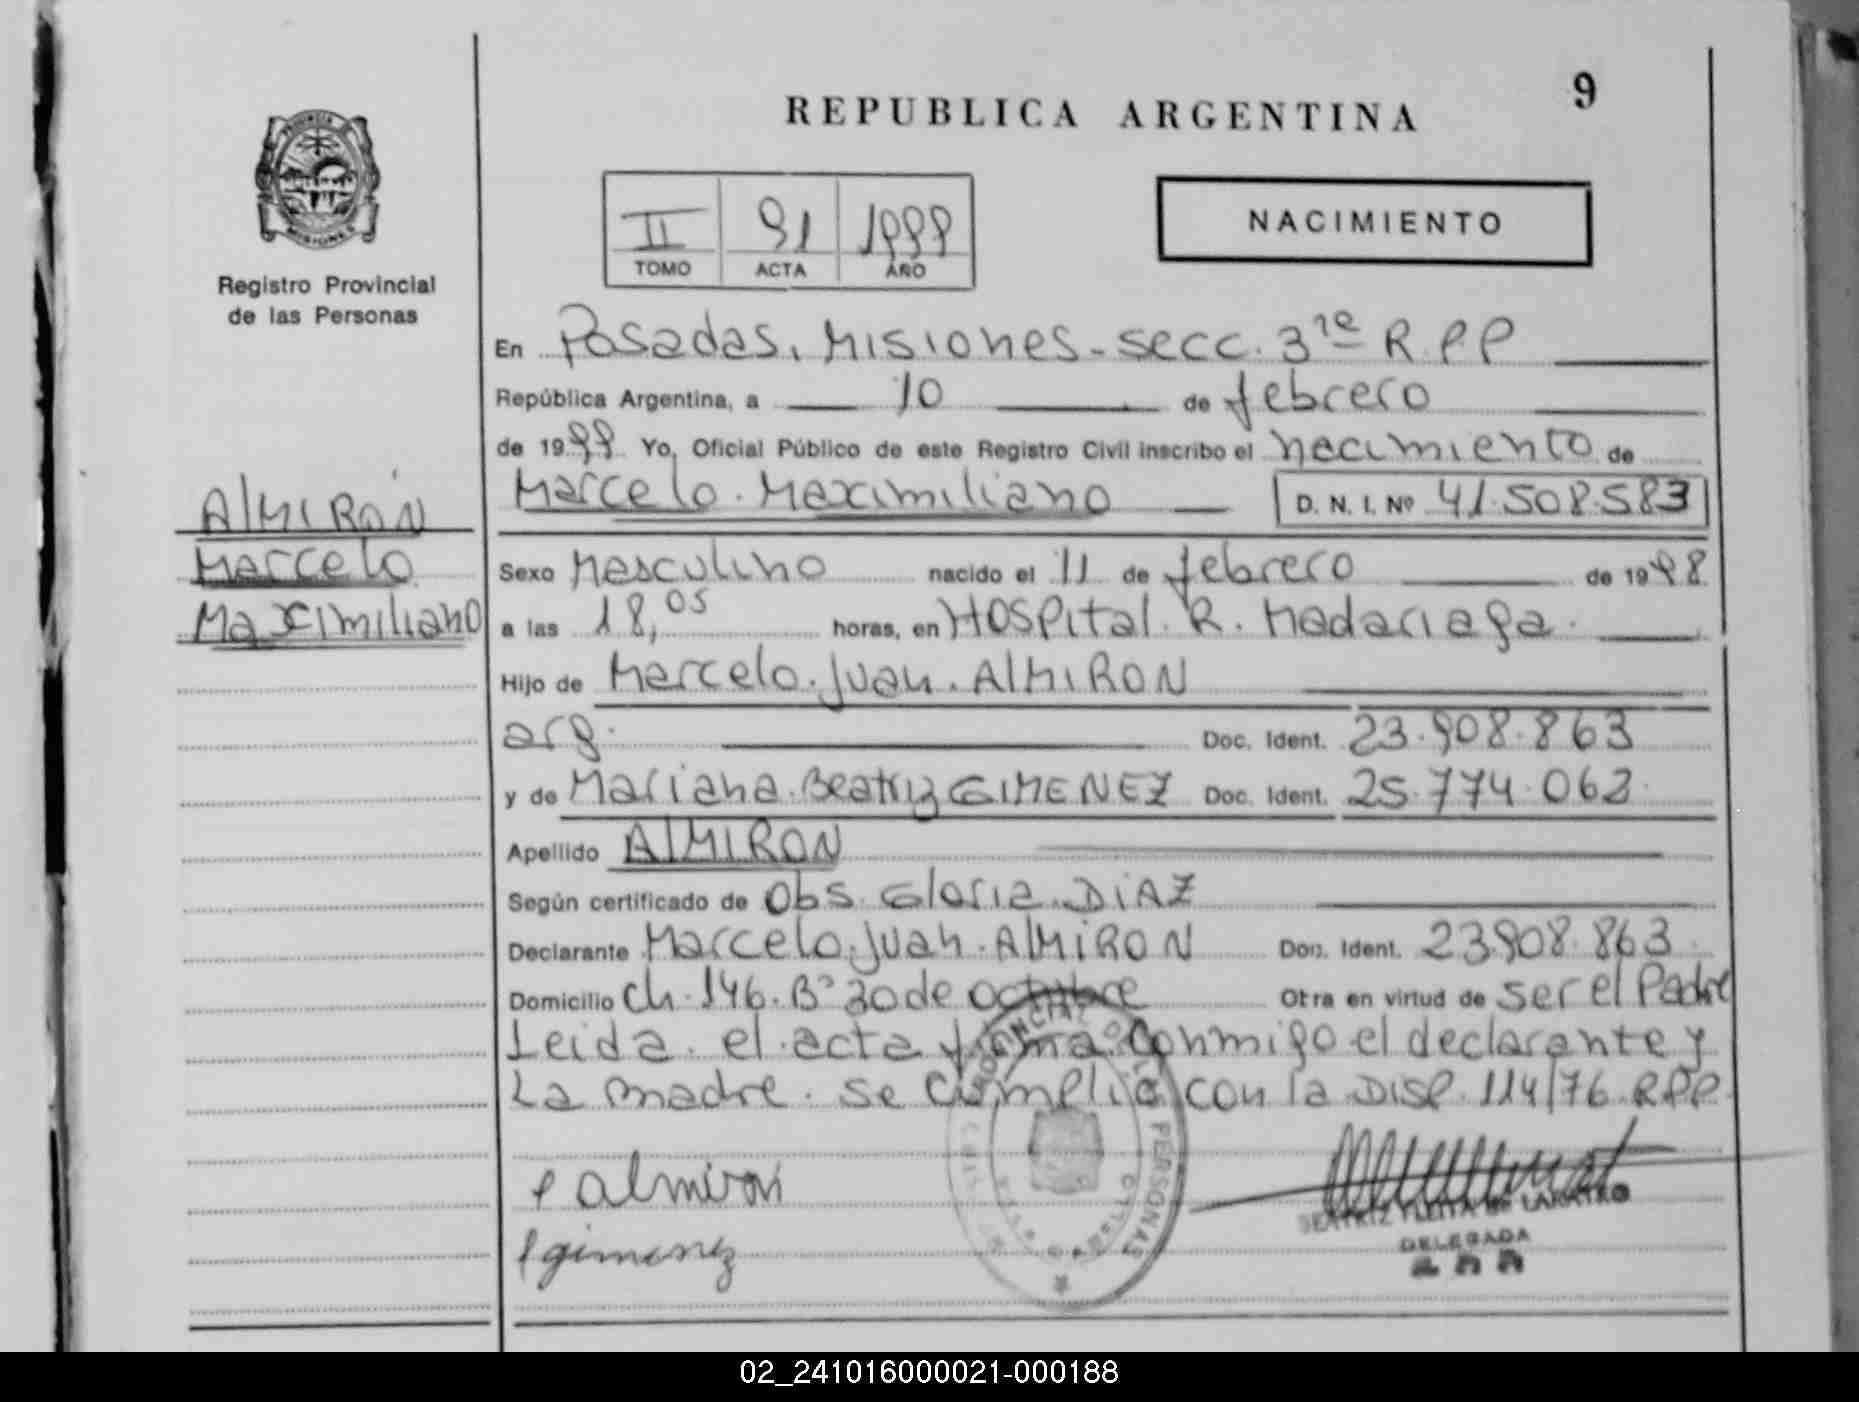 REPUBLICA ARGENTINA
9
PROVINCIA DE
MISIONES
Registro Provincial
de las Personas
II 91 1999
TOMO ACTA AÑO
NACIMIENTO
En Posadas, Misiones - secc. 3ra R.P.P
República Argentina, a 10 de febrero
de 1999 Yo, Oficial Público de este Registro Civil inscribo el nacimiento de
Marcelo Maximiliano D. N. I. Nº 41.508.583
ALMIRON
Marcelo
Maximiliano
Sexo Masculino nacido el 11 de febrero de 1998
a las 18,05 horas, en Hospital R. Madariaga.
Hijo de Marcelo Juan ALMIRON
arg. Doc. Ident. 23.908.863
y de Mariana Beatriz GIMENEZ Doc. Ident. 25.774.062
Apellido ALMIRON
Según certificado de Obs. Gloria DIAZ
Declarante Marcelo Juan ALMIRON Doc. Ident. 23.908.863
Domicilio Ch. 146. Bº 30 de octubre Otra en virtud de ser el Padre
Leida el acta firma conmigo el declarante y
La madre. Se cumplió con la Disp. 114/76. RPP.
almiron
gimenez
PERSONAS
DELEGADA
02_241016000021-000188